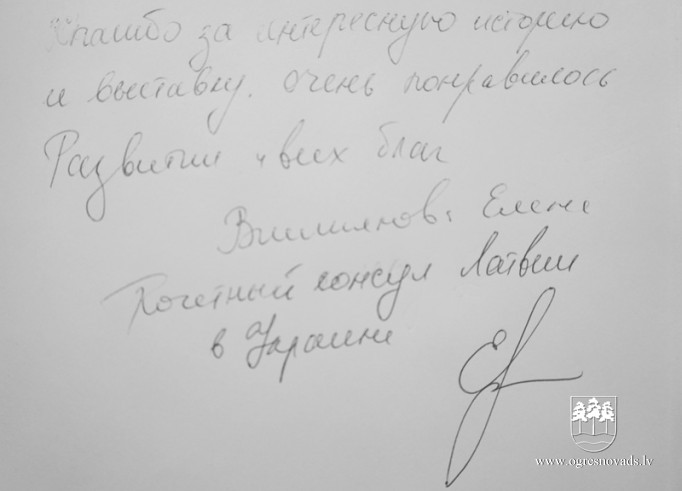 Спасибо за интересную историю
и выставку. Очень понравилось
Развития и всех благ
Елена
Почетный консул Латвии
в Украине
www.ogresnovads.lv